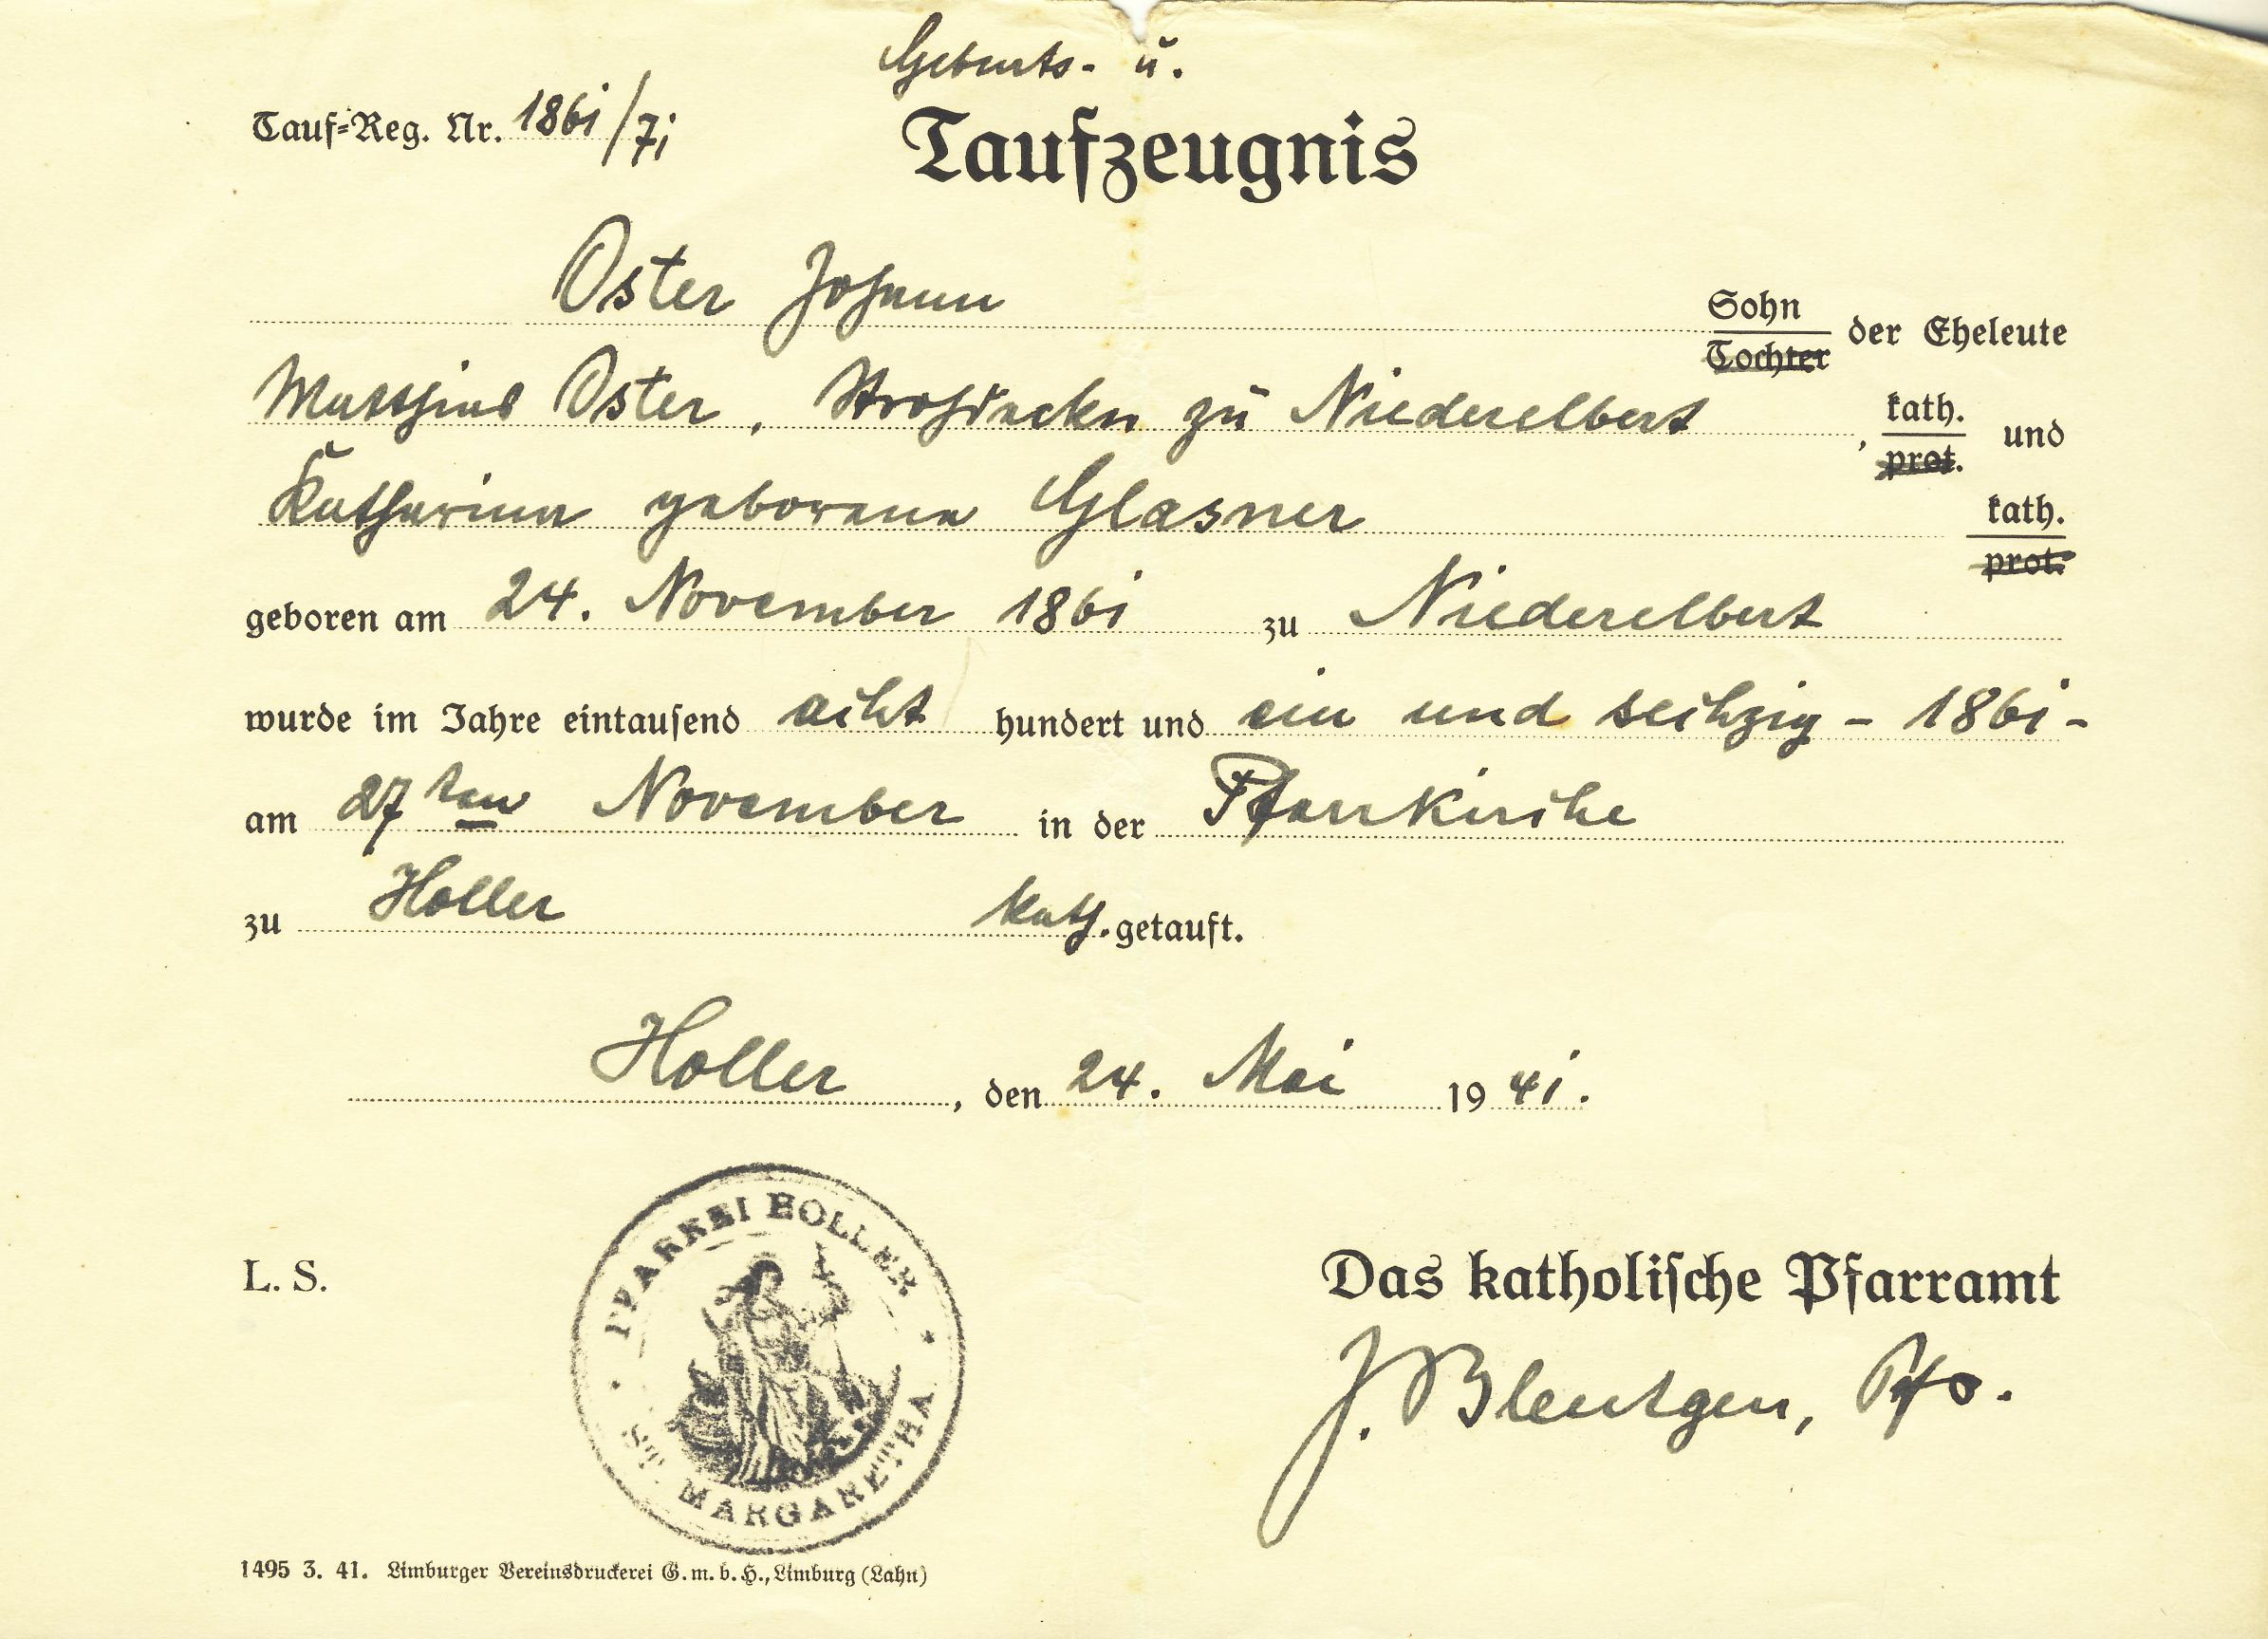 Geburts- u.
Tauf-Reg. Nr. 1861/71
Taufzeugnis
Oster Johann Sohn
Tochter der Eheleute
Matthias Oster, Strohdecker zu Niederelbert, kath.
prot. und
Katharina geborene Glasner kath.
prot.
geboren am 24. November 1861 zu Niederelbert
wurde im Jahre eintausend acht hundert und ein und sechzig - 1861 -
am 27ten November in der Pfarrkirche
zu Holler kath. getauft.
Holler, den 24. Mai 1941.
PFARREI HOLLER
ST. MARGARETHA
L. S.
Das katholische Pfarramt
J. Blentgen, Pfr.
1495 3. 41. Limburger Vereinsdruckerei G.m.b.H., Limburg (Lahn)